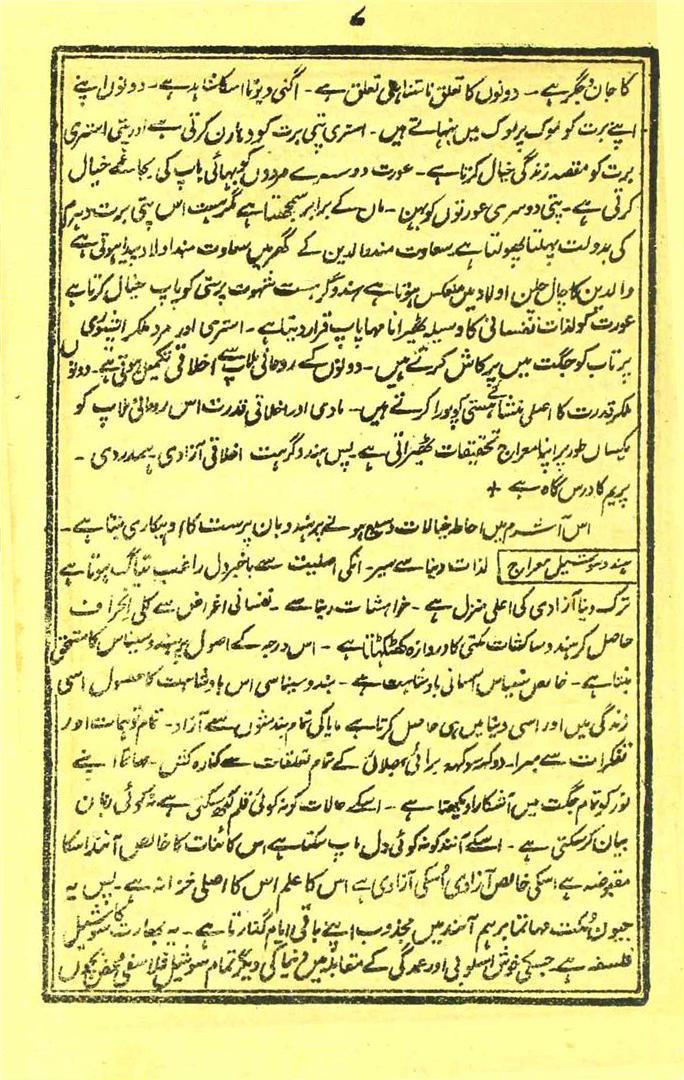 ۷
کا جان و جگر ہے ۔ دونوں کا تعلق ناستنا ہی تعلق ہے ۔ اگنی دیوتا اسکا شاہد ہے ۔ دونوں اپنے
اپنے برت کو لوک پرلوک میں نبہاتے ہیں ۔ استری پتی برت کو دہارن کرتی ہے اور پتی استری
برت کو مقصد زندگی خیال کرتا ہے ۔ عورت دوسرے مردوں کو بھائی باپ کی بجائے خیال
کرتی ہے ۔ پتی دوسری عورتوں کو بہن ۔ ماں کے برابر سمجھتا ہے گرہست اس پتی برت دہرم
کی بدولت پہلتا پھولتا ہے سعادت مند والدین کے گھر میں سعادت مند اولاد پیدا ہوتی ہے
والدین کا چال چلن اولاد میں منعکس ہوتا ہے ہندو گرہست شہوت پرستی کو پاپ خیال کرتا ہے
عورت کو لذات نفسانی کا وسیلہ ٹھیرانا مہا پاپ قرار دیتا ہے ۔ استری اور مرد ملکر ایشوری
پرتاپ کو جگت میں پرکاش کرتے ہیں ۔ دونوں کے روحانی ملاپ سے اخلاقی تکمیل ہوتی ہے ۔ دونوں
ملکر قدرت کا اعلی منشائے ہستی کو پورا کرتے ہیں ۔ مادی اور اخلاقی قدرت اس روحانی ملاپ کو
یکساں طور پر اپنا معراج تحقیقات ٹھیراتی ہے ۔ پس ہندو گرہست اخلاقی آزادی ہمدردی ۔
پریم کا درس گاہ ہے +
اس آشرم میں احاطہ خیالات وسیع ہونے پر ہندو بان پرست کا ادہیکاری بنتا ہے ۔
ہندو سوشیل معراج لذات دنیا سے سیر ۔ انکی اصلیت سے باخبر دل راغب تیاگ ہوتا ہے
ترک دنیا آزادی کی اعلی منزل ہے ۔ خواہشات دنیا سے ۔ نفسانی اغراض سے کلی انحراف
حاصل کر ہندو ساکشات مکتی کا دروازہ کھٹکہٹاتا ہے ۔ اس درجہ کے اصول پر ہندو سنیاس کا مستحق
بنتا ہے ۔ خالص سنیاس آسمانی بادشاہت ہے ۔ ہندو سنیاسی اس بادشاہت کا حصول اسی
زندگی میں اور اسی دنیا میں ہی حاصل کرتا ہے مایا کی تمام بندشوں سے آزاد ۔ تمام توہمات اور
تفکرات سے مبرا ۔ دوکہہ سوکہہ برائی بھلائی کے تمام تعلقات سے کنارہ کش ۔ مہاتما اپنے
نور کو تمام جگت میں آشکارا دیکھتا ہے ۔ اسکے حالات کو نہ کوئی قلم لکھ سکتی ہے نہ کوئی زبان
بیان کر سکتی ہے ۔ اسکے آنند کو نہ کوئی دل ماپ سکتا ہے اس کائنات کا خالص آنند اسکا
مقبوضہ ہے اسکی خالص آزادی اُسکی آزادی ہے اس کا علم اس کا اصلی خزانہ ہے ۔ پس یہ
جیون مُکت مہاتما برہم آنند میں مجذوب اپنے باقی ایام گذارتا ہے ۔ یہ بھارت کا سوشیل
فلسفہ ہے جسکی خوش اسلوبی اور عمدگی کے مقابلہ میں دنیا کی دیگر تمام سوشیل فلاسفی محض بچوں